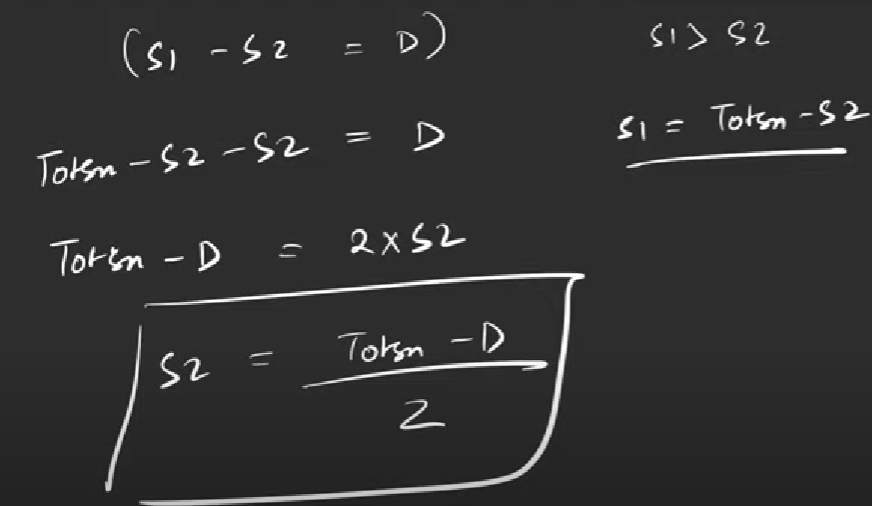 (S1 - S2 = D)
S1 > S2
S1 = Totsm - S2
Totsm - S2 - S2 = D
Totsm - D = 2 x S2
S2 = Totsm - D
2